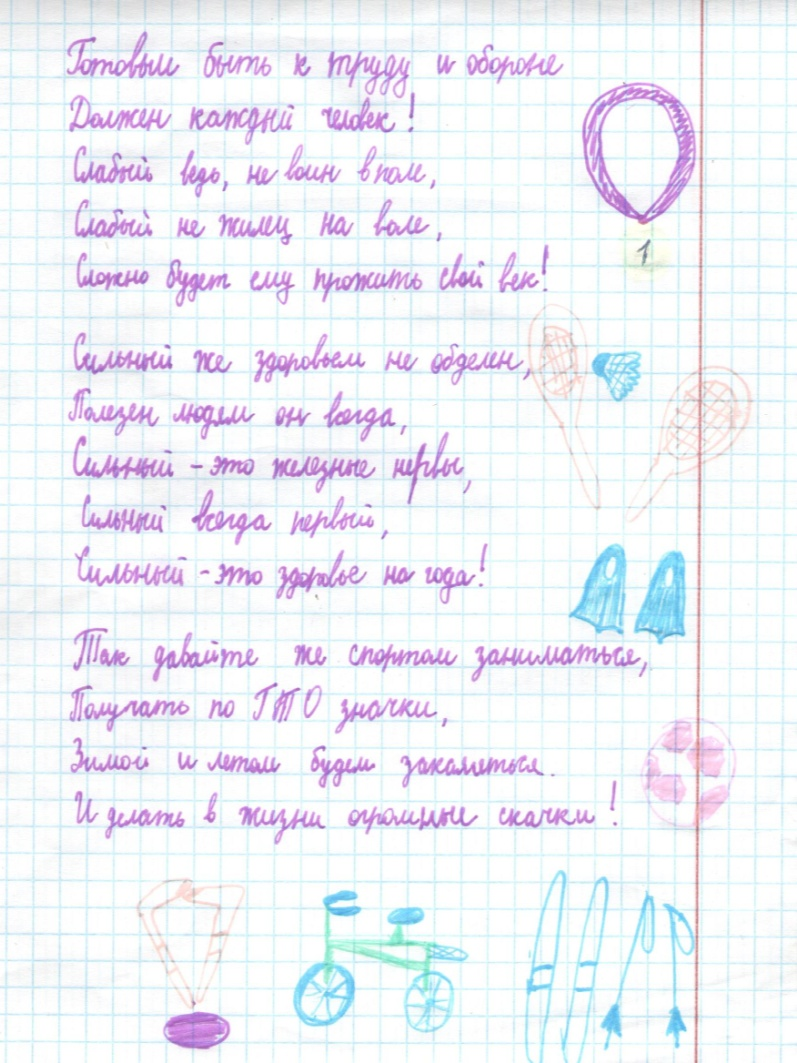 Готовым быть к труду и обороне
Должен каждый человек!
Слабый ведь, не воин в поле,
Слабый не жилец на воле,
1
Сложно будет ему прожить свой век!
Сильный же здоровьем не обделен,
Полезен людям он всегда,
Сильный - это железные нервы,
Сильный всегда первый,
Сильный - это здоровье на года!
Так давайте же спортом заниматься,
Получать по ГТО значки,
Зимой и летом будем закаляться.
И делать в жизни огромные скачки!